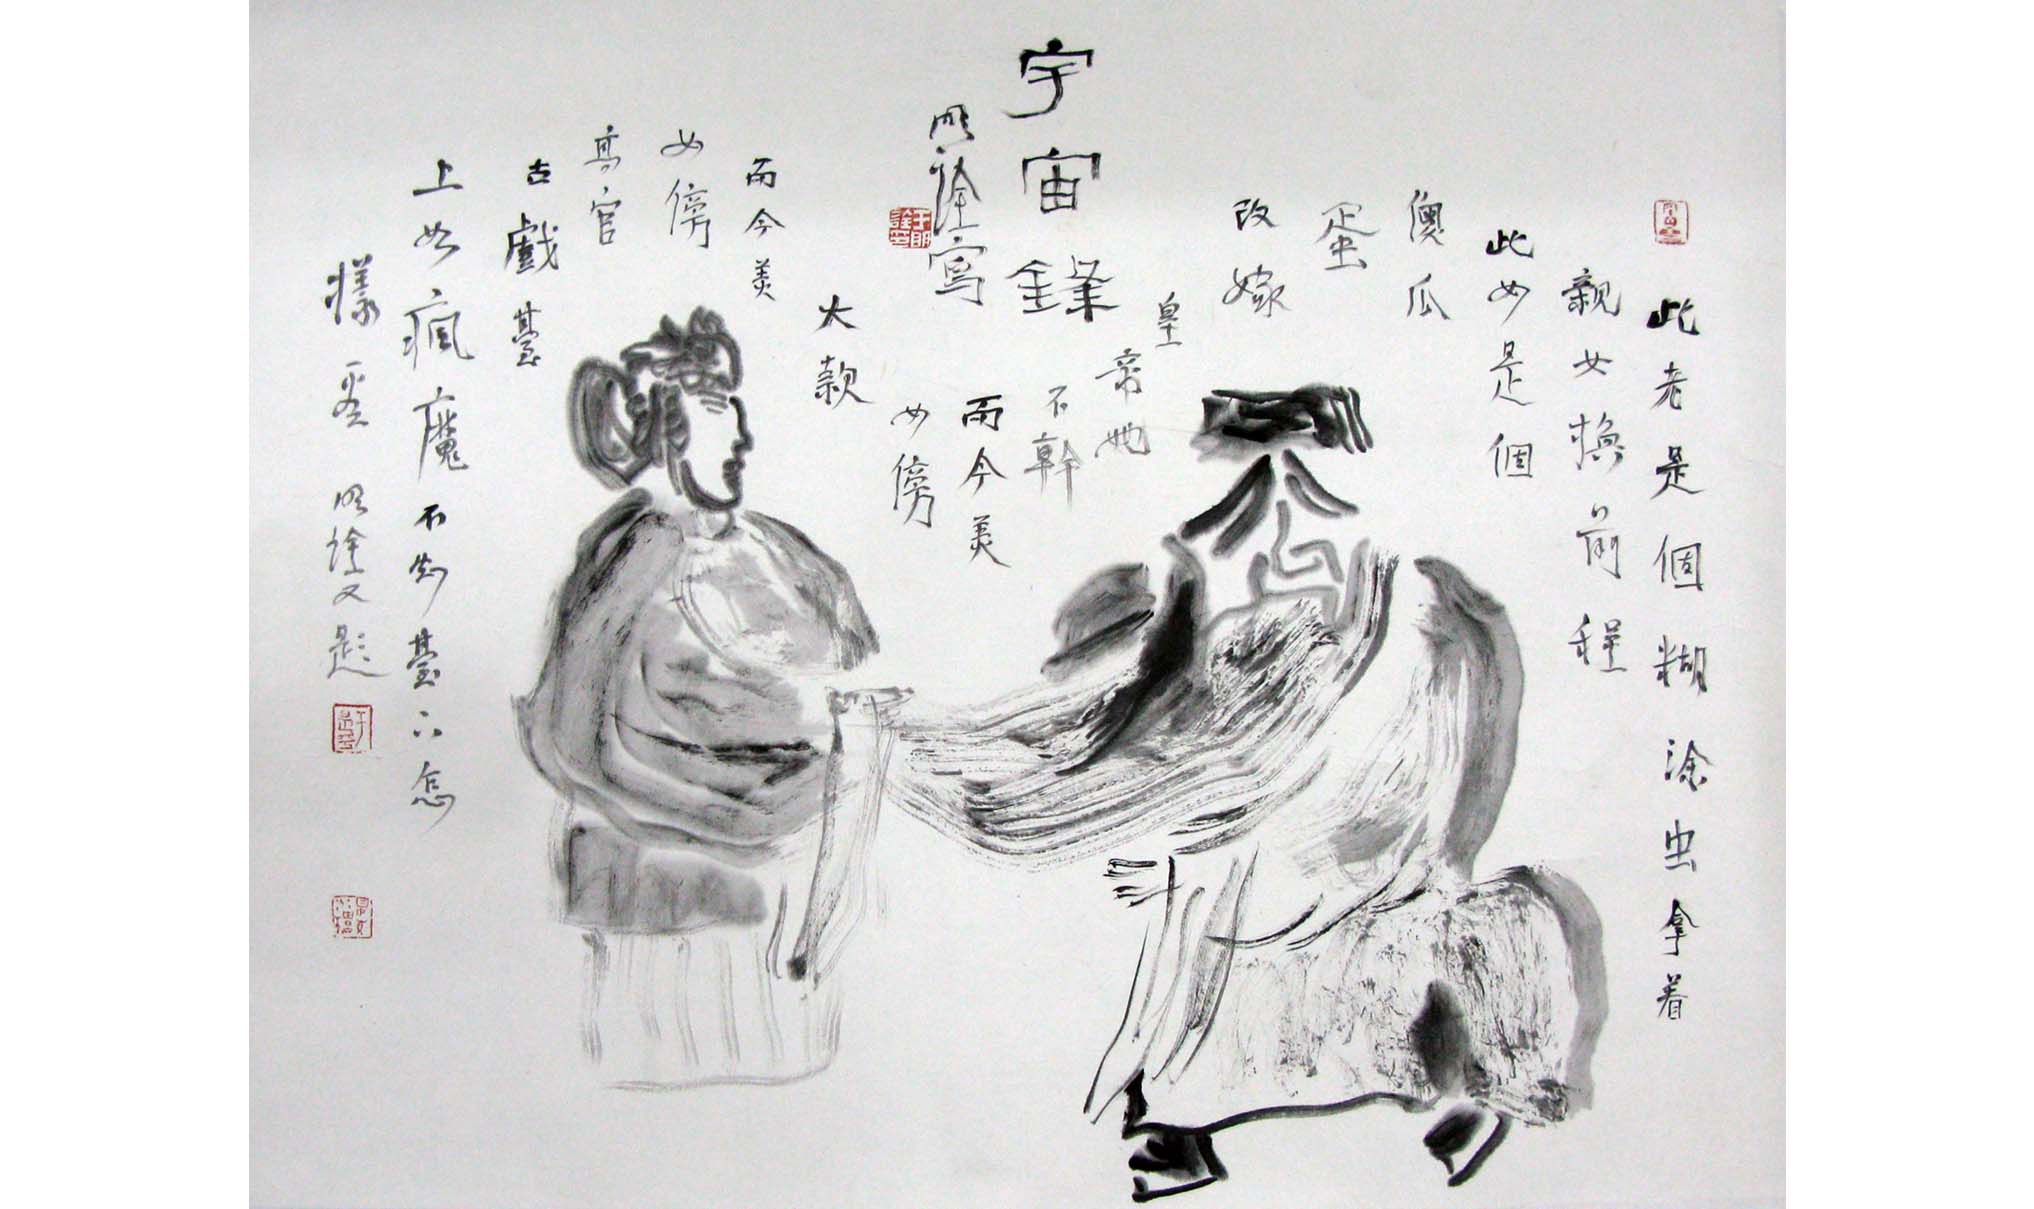 此老是個糊涂虫拿着
親女換前程
此女是個
傻瓜
蛋
改嫁
皇
帝她
不幹
而今美
女傍
大款
而今美
女傍
高官
古戲臺
上如瘋魔不知臺下怎
樣 明詮又題
宇宙鋒
明詮寫
于明詮印